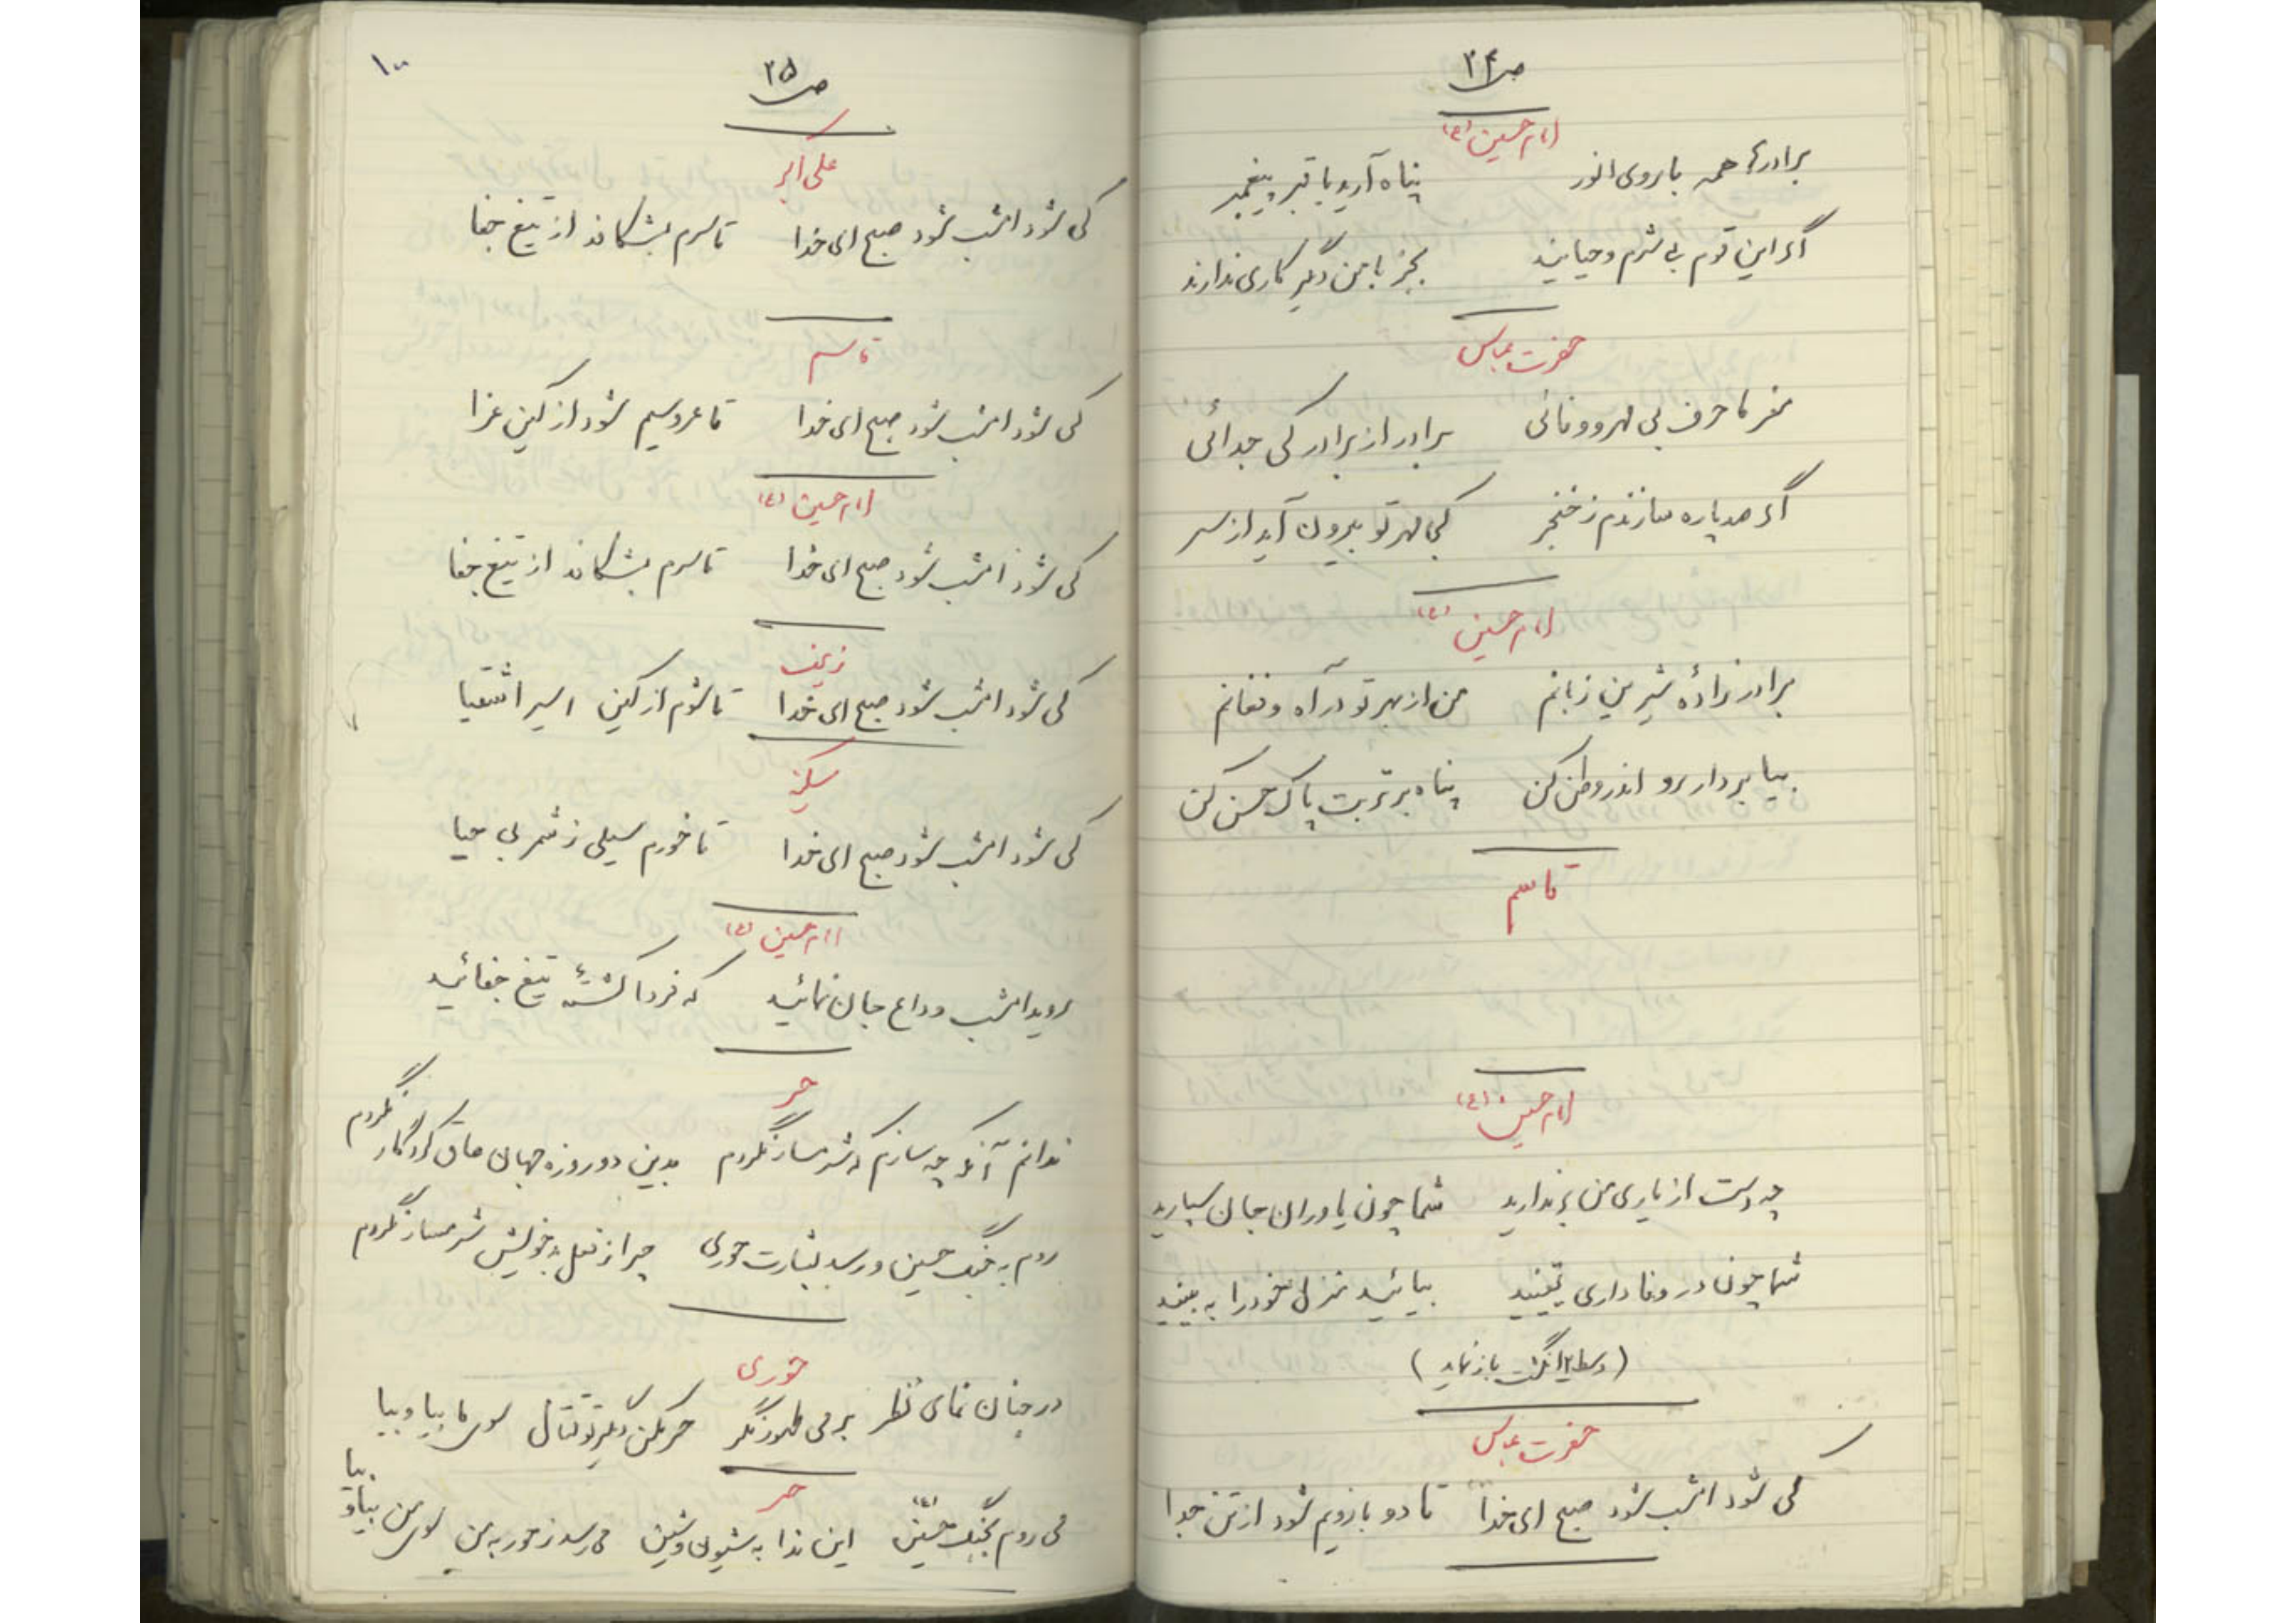 ص ۲۴
امام حسین (ع)
برادرها همه با روی انور پناه آرید با قبر پیغمبر
اگر این قوم بی شرم و حیایند بجز با من دگر کاری ندارند
حضرت عباس
مفرما حرف بی مهر و وفائی برادر از برادر کی جدائی
اگر صد پاره سازندم ز خنجر کجا مهر تو بیرون آید از سر
امام حسین (ع)
برادرزادهٔ شیرین زبانم من از بهر تو در آه و فغانم
بیا بردار رو اندر وطن کن پناه بر تربت پاک حسن کن
قاسم
امام حسین (ع)
چه دست از یاری من برندارید شما چون یاوران جان سپارید
شما چون در وفاداری یقینید بیائید منزل خود را به بینید
(وسط ۲ انگشت باز نماید)
حضرت عباس
کی شود امشب شود صبح ای خدا تا دو بازویم شود از تن جدا
ص ۲۵
۱۰۰
علی اکبر
کی شود امشب شود صبح ای خدا تا سرم بشکافد از تیغ جفا
قاسم
کی شود امشب شود صبح ای خدا تا عروسیم شود از کین عزا
امام حسین (ع)
کی شود امشب شود صبح ای خدا تا سرم بشکافد از تیغ جفا
زینب
کی شود امشب شود صبح ای خدا تا شوم از کین اسیر اشقیا
سکینه
کی شود امشب شود صبح ای خدا تا خورم سیلی ز شمر بی حیا
امام حسین (ع)
روید امشب وداع جان نمائید که فردا کشتهٔ تیغ جفائید
حر
ندانم آنکه چه سازم که شرمسار نگردم بدین دو روزه جهان عاق کردگار نگردم
روم به جنگ حسین و رسد بشارت حوری چرا ز فعل بد خویش شرمسار نگردم
حوری
در جنان نمای نظر بر می طهور نگر حر مکن دگر تو قتال سوی ما بیا و بیا
حر
می روم بجنگ حسین (ع) این ندا به شیون و شین می رسد ز حور به من سوی من بیا و بیا